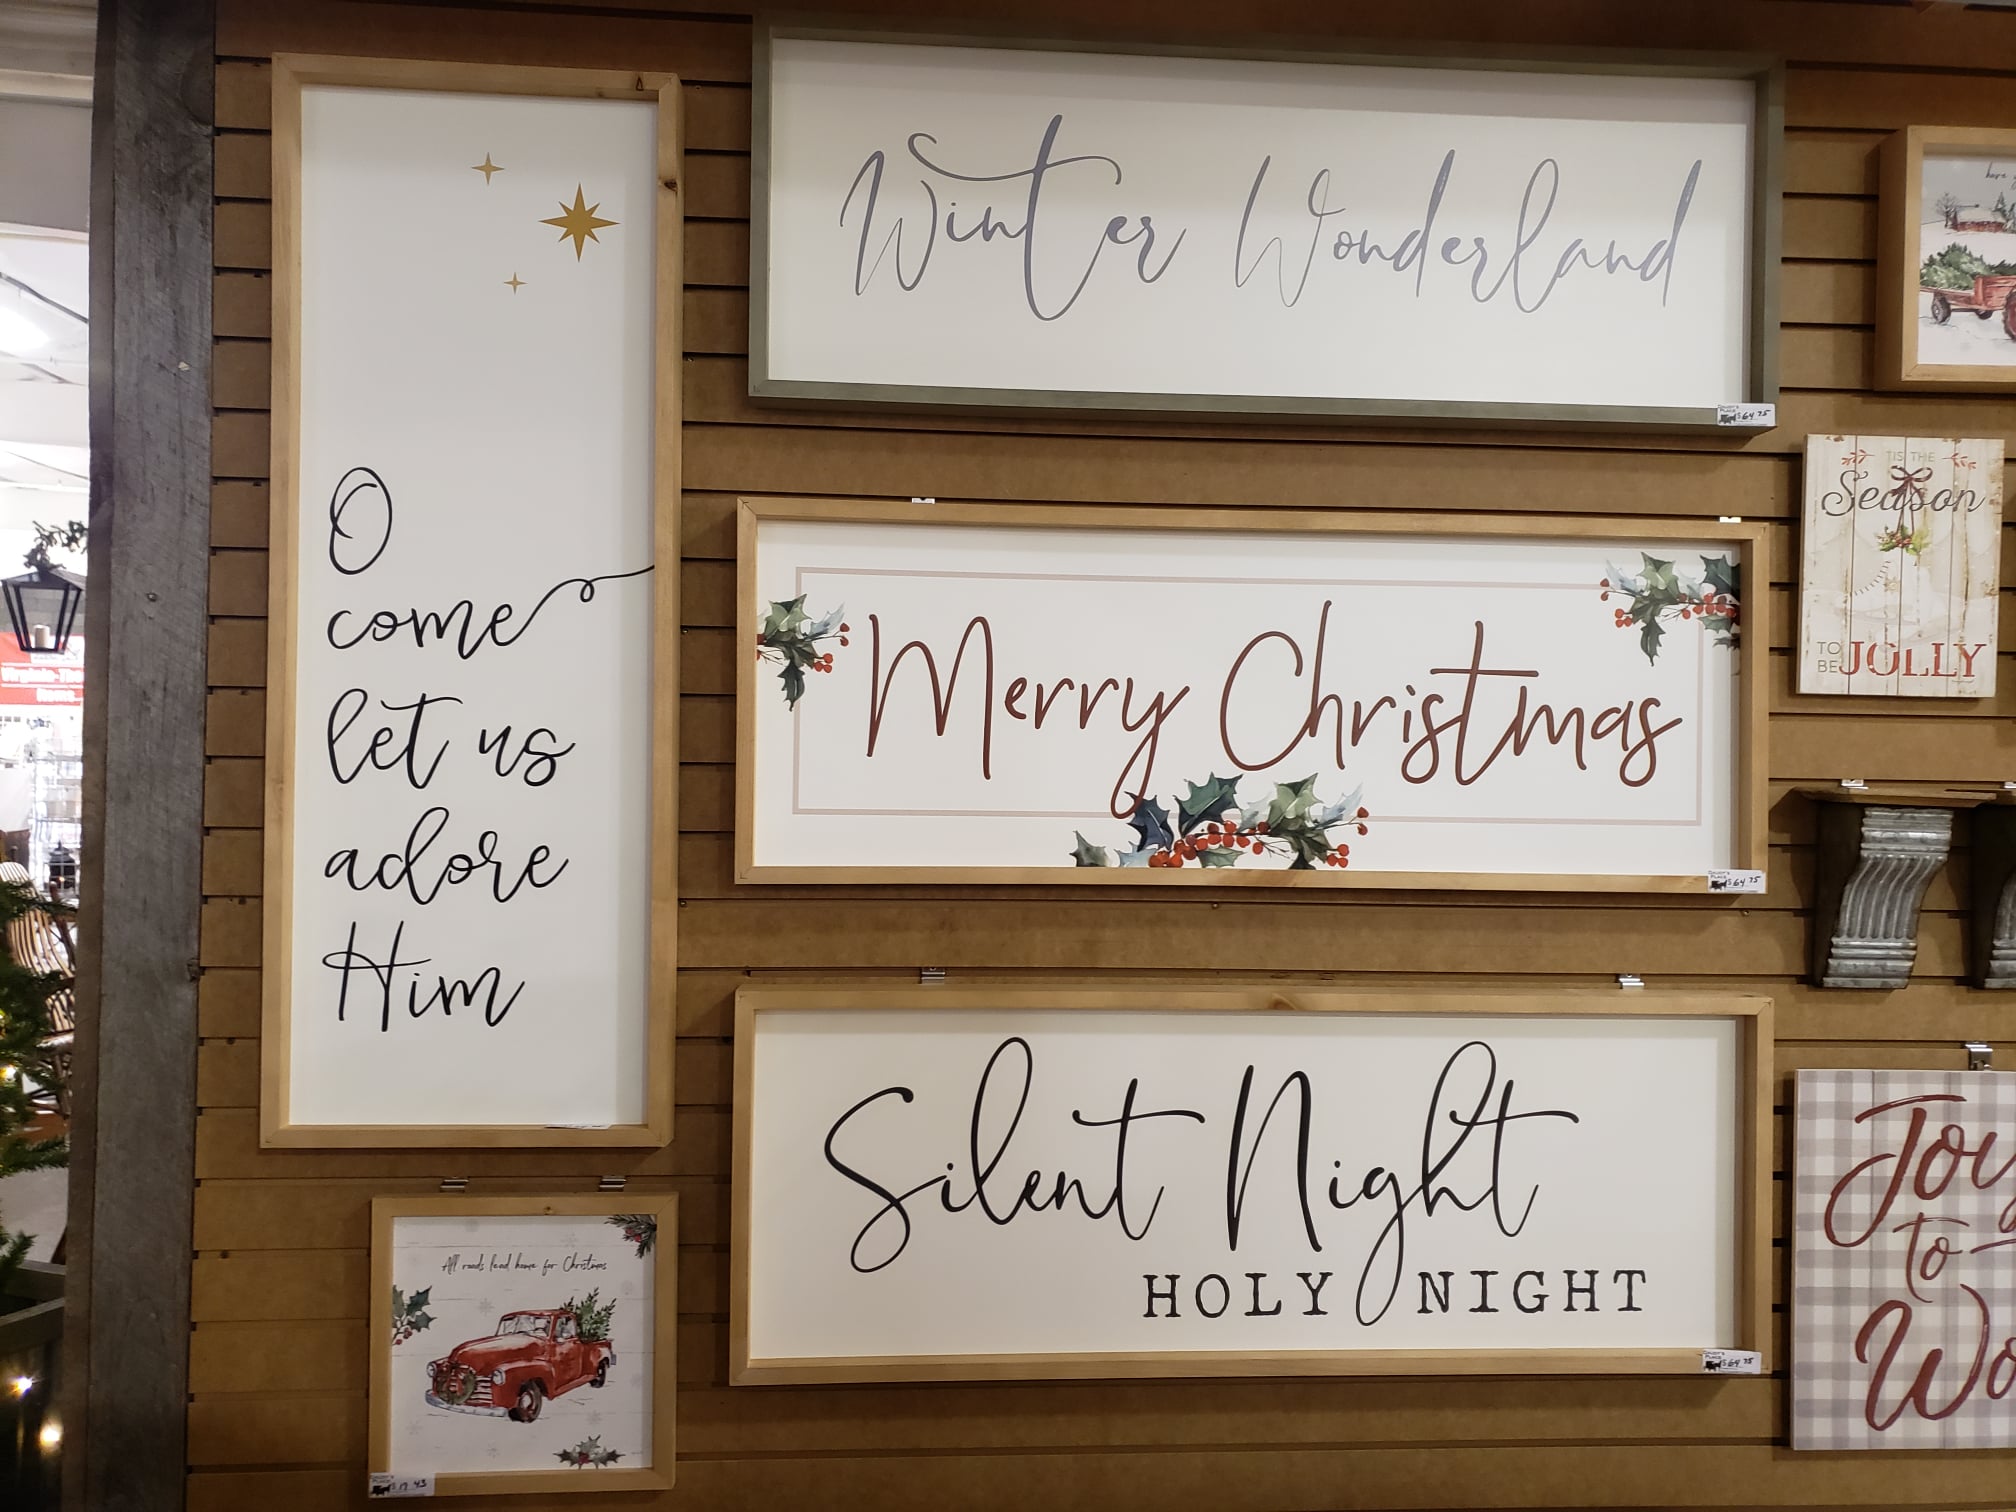 O
come
let us
adore
Him
Winter Wonderland
$64.75
Merry Christmas
$64.75
Silent Night
HOLY NIGHT
$64.75
All roads lead home for Christmas
$17.43
have
'TIS THE
Season
TO
BE JOLLY
Joy
to
Wo